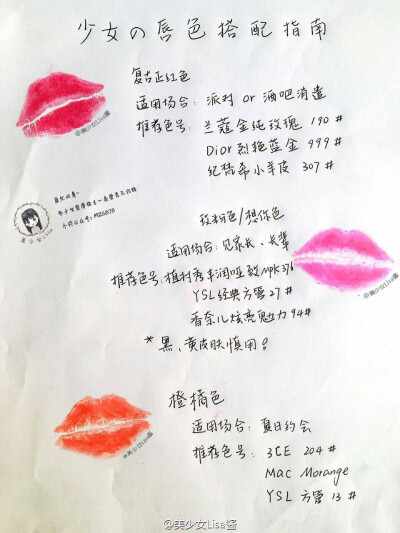 少女の唇色搭配指南
复古正红色
适用场合：派对 or 酒吧消遣
推荐色号：兰蔻金纯玫瑰 190#
Dior 烈艳蓝金 999#
纪梵希小羊皮 307#
@美少女Lisa酱
美少女Lisa
玫粉色/想你色
适用场合：见家长、长辈
推荐色号：植村秀丰润哑致 MPK376
YSL 经典方管 27#
香奈儿炫亮魅力 94#
*黑、黄皮肤慎用！
@美少女Lisa酱
橙橘色
适用场合：夏日约会
推荐色号：3CE 204#
Mac Morange
YSL 方管 13#
@美少女Lisa酱
@美少女Lisa酱